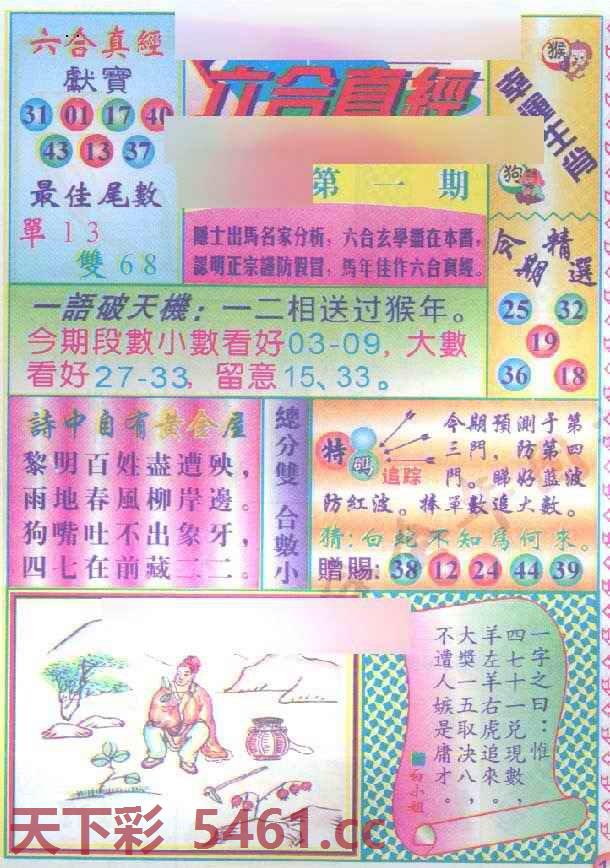 六合真經
獻寶
31 01 17 40
43 13 37
最佳尾數
單13
雙68
六合真經
第一期
隱士出馬名家分析，六合玄學盡在本書，
認明正宗謹防假冒，馬年佳作六合真經。
幸運生肖
猴
狗
今期精選
25 32
19
36 18
一語破天機：一二相送过猴年。
今期段數小數看好03-09，大數
看好27-33，留意15、33。
詩中自有黃金屋
黎明百姓盡遭殃，
雨地春風柳岸邊。
狗嘴吐不出象牙，
四七在前藏二二。
總分雙 合數小
特碼追踪
今期預測于第
三門，防第四
門。睇好藍波
防紅波。捧單數追大數。
猜：白蛇不知為何來。
贈賜：38 12 24 44 39
一字之曰：惟
四七十一兑現數，
羊左羊右虎追來。
大獎一五取决八，
不遭人嫉是庸才。
白小姐
天下彩 5461.cc